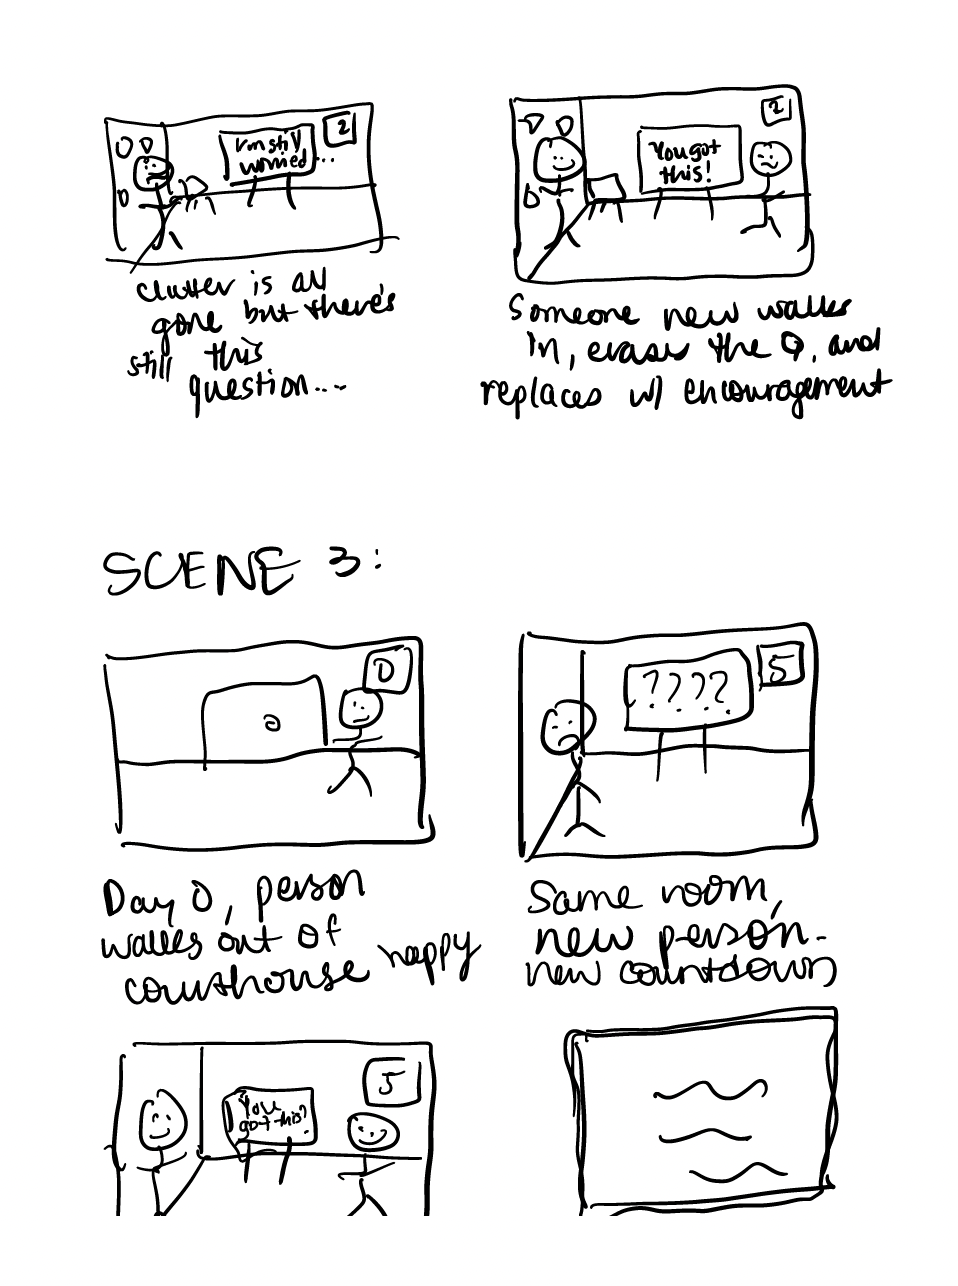 I'm still
worried...
2
clutter is all
gone but there's
still this
question...
You got
this!
2
Someone new walks
in, erases the Q, and
replaces w/ encouragement
SCENE 3:
0
Day 0, person
walks out of
courthouse happy
????
5
Same room,
new person-
new countdown
You
got this!
5